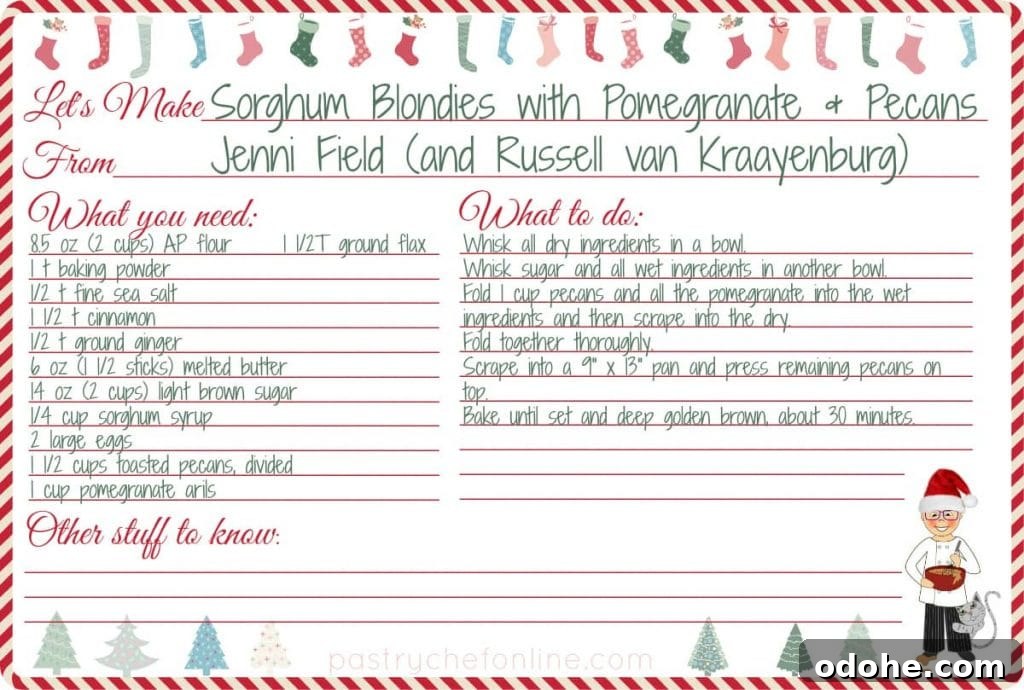 Let's Make Sorghum Blondies with Pomegranate & Pecans
From Jenni Field (and Russell van Kraayenburg)
What you need:
8.5 oz (2 cups) AP flour 1 1/2T ground flax
1 t baking powder
1/2 t fine sea salt
1 1/2 t cinnamon
1/2 t ground ginger
6 oz (1 1/2 sticks) melted butter
14 oz (2 cups) light brown sugar
1/4 cup sorghum syrup
2 large eggs
1 1/2 cups toasted pecans, divided
1 cup pomegranate arils
What to do:
Whisk all dry ingredients in a bowl.
Whisk sugar and all wet ingredients in another bowl.
Fold 1 cup pecans and all the pomegranate into the wet
ingredients and then scrape into the dry.
Fold together thoroughly.
Scrape into a 9" x 13" pan and press remaining pecans on
top.
Bake until set and deep golden brown, about 30 minutes.
Other stuff to know:
pastrychefonline.com
odohe.com